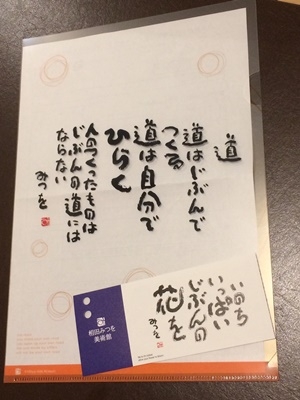 道
道はじぶんで
つくる
道は自分で
ひらく
人のつくったものは
じぶんの道には
ならない
みつを
いのち
いっぱい
じぶんの
花を
みつを
相田みつを
美術館